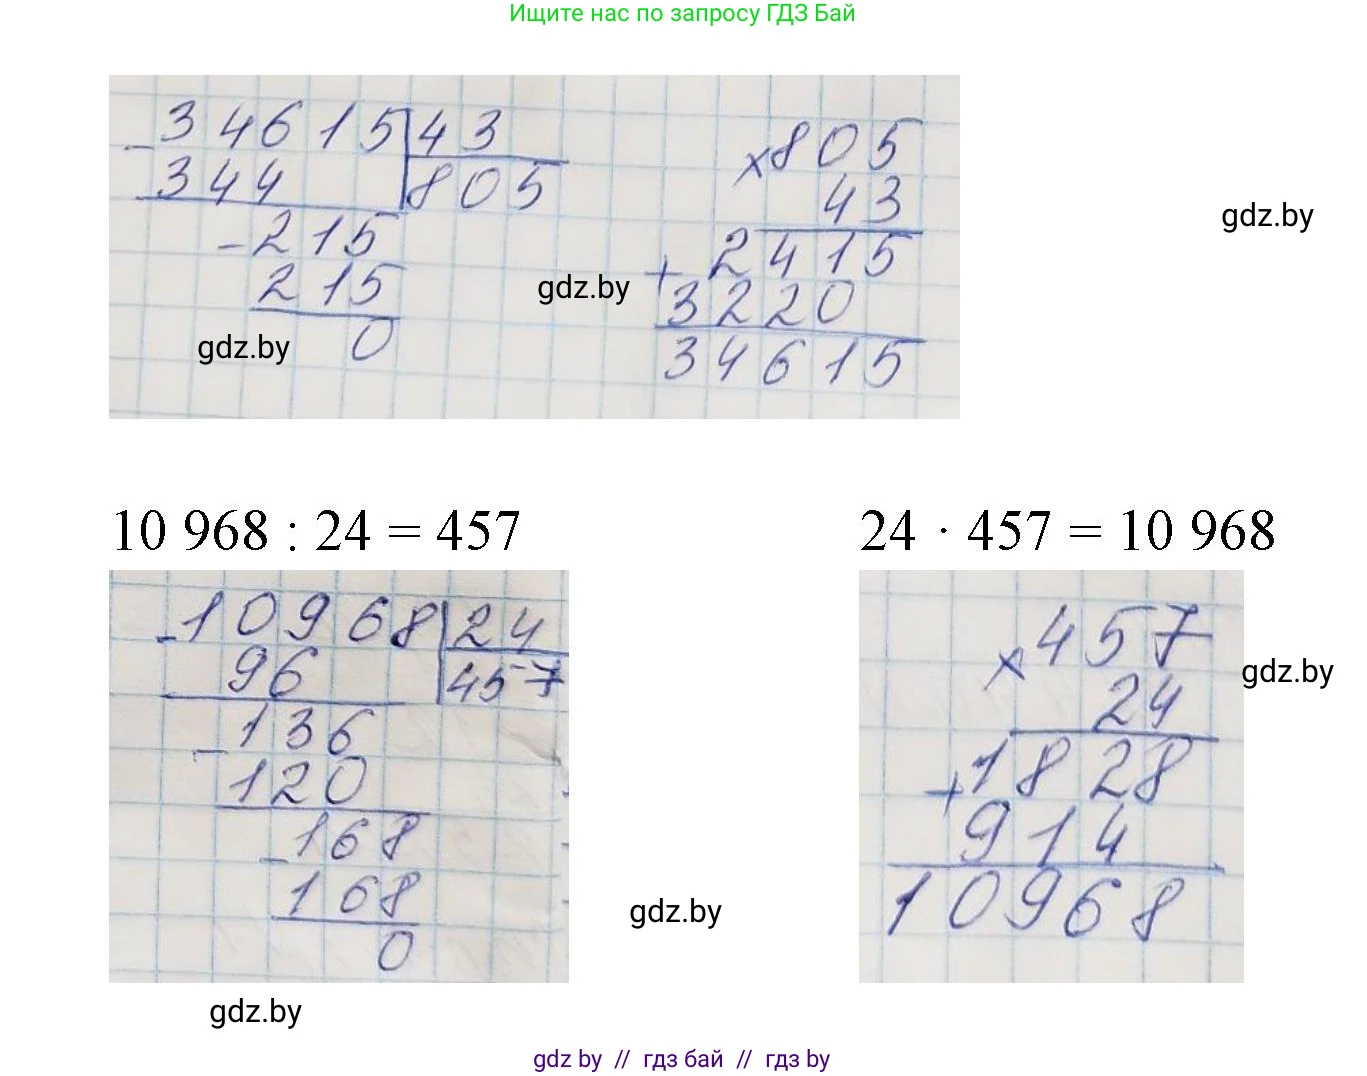 Ищите нас по запросу ГДЗ Бай
- 34615 | 43
344 | 805
- 215
215
0
× 805
43
+ 2415
3220
34615
gdz.by
gdz.by
gdz.by
10 968 : 24 = 457
- 10968 | 24
96 | 457
- 136
120
- 168
168
0
24 · 457 = 10 968
× 457
24
+ 1828
914
10968
gdz.by
gdz.by
gdz.by
gdz by // гдз бай // гдз by